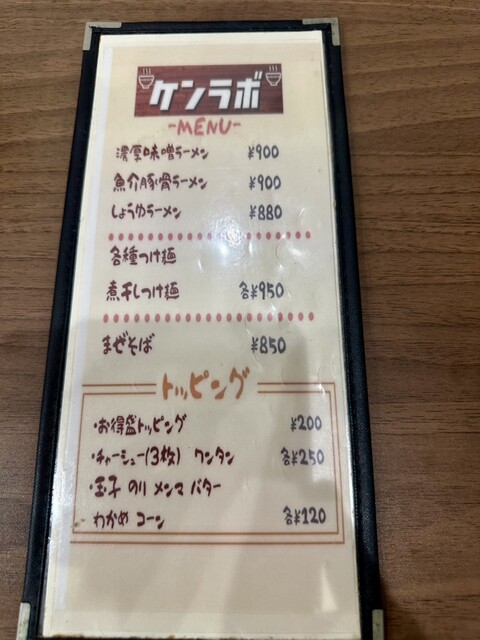 ケンラボ
-MENU-
濃厚味噌ラーメン ¥900
魚介豚骨ラーメン ¥900
しょうゆラーメン ¥880
各種つけ麺
煮干しつけ麺 各¥950
まぜそば ¥850
トッピング
・お得盛トッピング ¥200
・チャーシュー(3枚) ワンタン 各¥250
・玉子 のり メンマ バター
わかめ コーン 各¥120